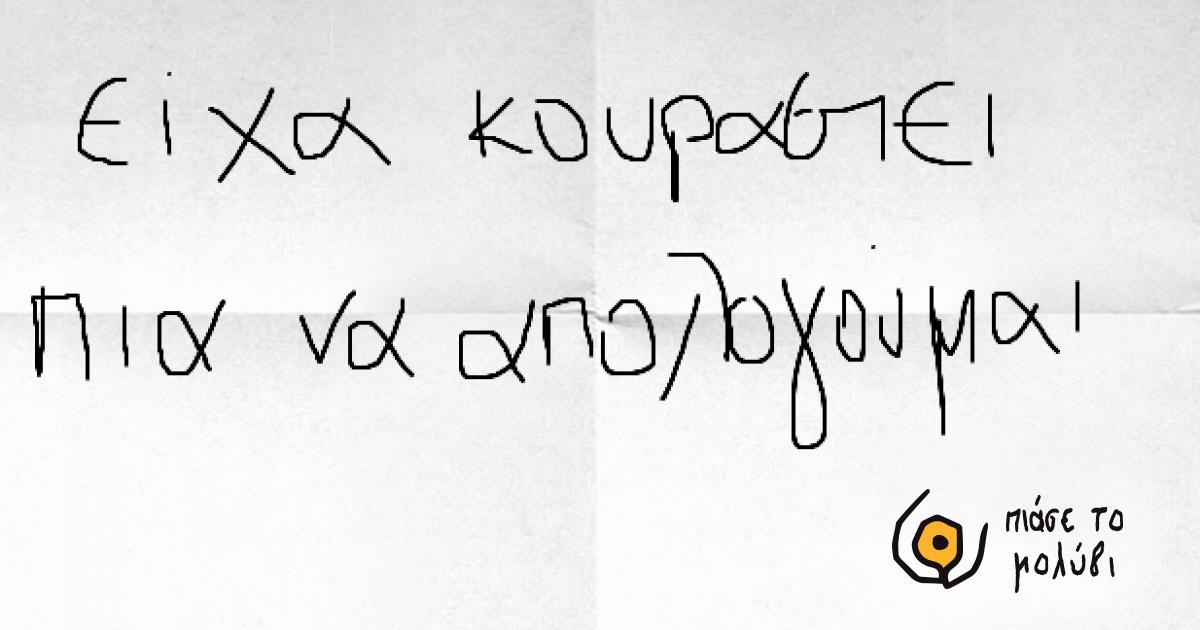 είχα κουραστει
πια να απολογουμαι
πιάσε το
μολύβι